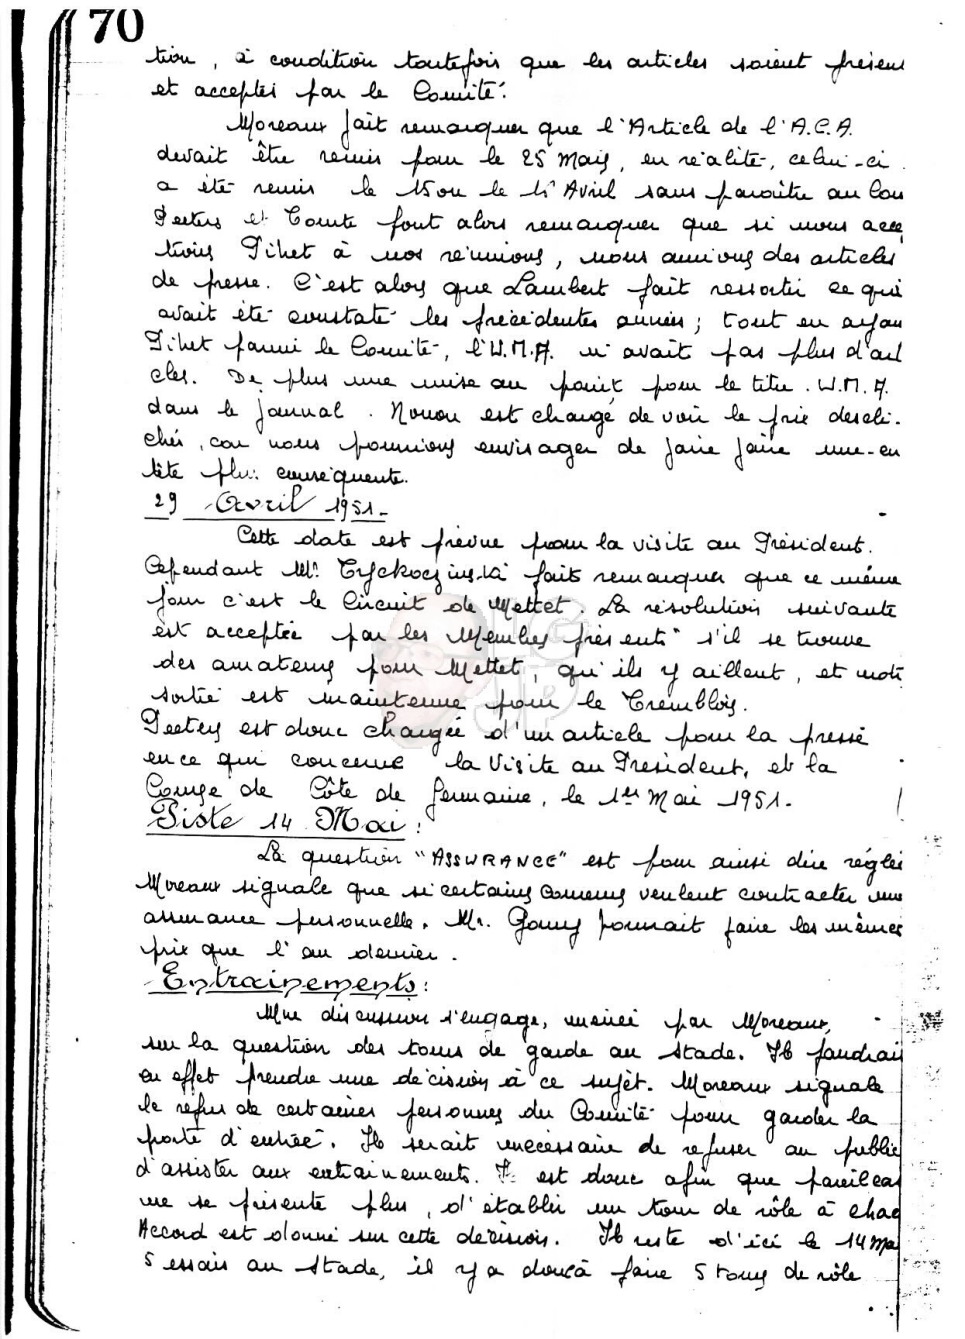 70
tion, à condition toutefois que les articles soient présen
et acceptés par le Comité.
Moreaux fait remarquer que l'Article de l'A.C.A.
devait être remis pour le 25 Mars, en réalité, celui-ci
a été remis le 15 ou le 1r Avril sans paraître au Con
Peeters et Comte font alors remarquer que si nous acce
tions Pihet à nos réunions, nous aurions des articles
de presse. C'est alors que Lambert fait ressortir ce qui
avait été constaté les précédentes années; tout en ayan
Pihet parmi le Comité, l'W.M.A. n'avait pas plus d'art
cles. De plus une mise au point pour le titre. W.M.A.
dans le journal. Nouon est chargé de voir le prix descli-
chés, car nous pourrions envisager de faire faire une-en
tête plus conséquente.
29 Avril 1951-
Cette date est prévue pour la visite au Président.
Cependant Mr. fait remarquer que ce même
jour c'est le Circuit de Mettet. La résolution suivante
est acceptée par les Membres présents "s'il se trouve
des amateurs pour Mettet, qu'ils y aillent, et notr
sortie est maintenue pour le Tremblois.
Peeters est donc chargée d'un article pour la presse
en ce qui concerne la Visite au President, et la
Course de Côte de Jemaine, le 1er Mai 1951-
Piste 14 Mai:
La question "ASSURANCE" est pour ainsi dire réglée
Moreaux signale que si certains coureurs veulent contracter une
assurance personnelle. Mr. pourrait faire les mêmes
prix que l'an dernier.
Entrainements:
Une discussion s'engage, menée par Moreaux,
sur la question des tours de garde au Stade. Il faudrai
en effet prendre une décision à ce sujet. Moreaux signale
le refus de certaines personnes du Comité pour garder la
porte d'entrée. Il serait nécessaire de refuser au public
d'assister aux entrainements. Il est donc afin que pareil cas
ne se présente plus, d'établir un tour de rôle à chac
Accord est donné sur cette décision. Il reste d'ici le 14 Ma
5 essais au Stade, il y a doncà faire 5 tours de rôle